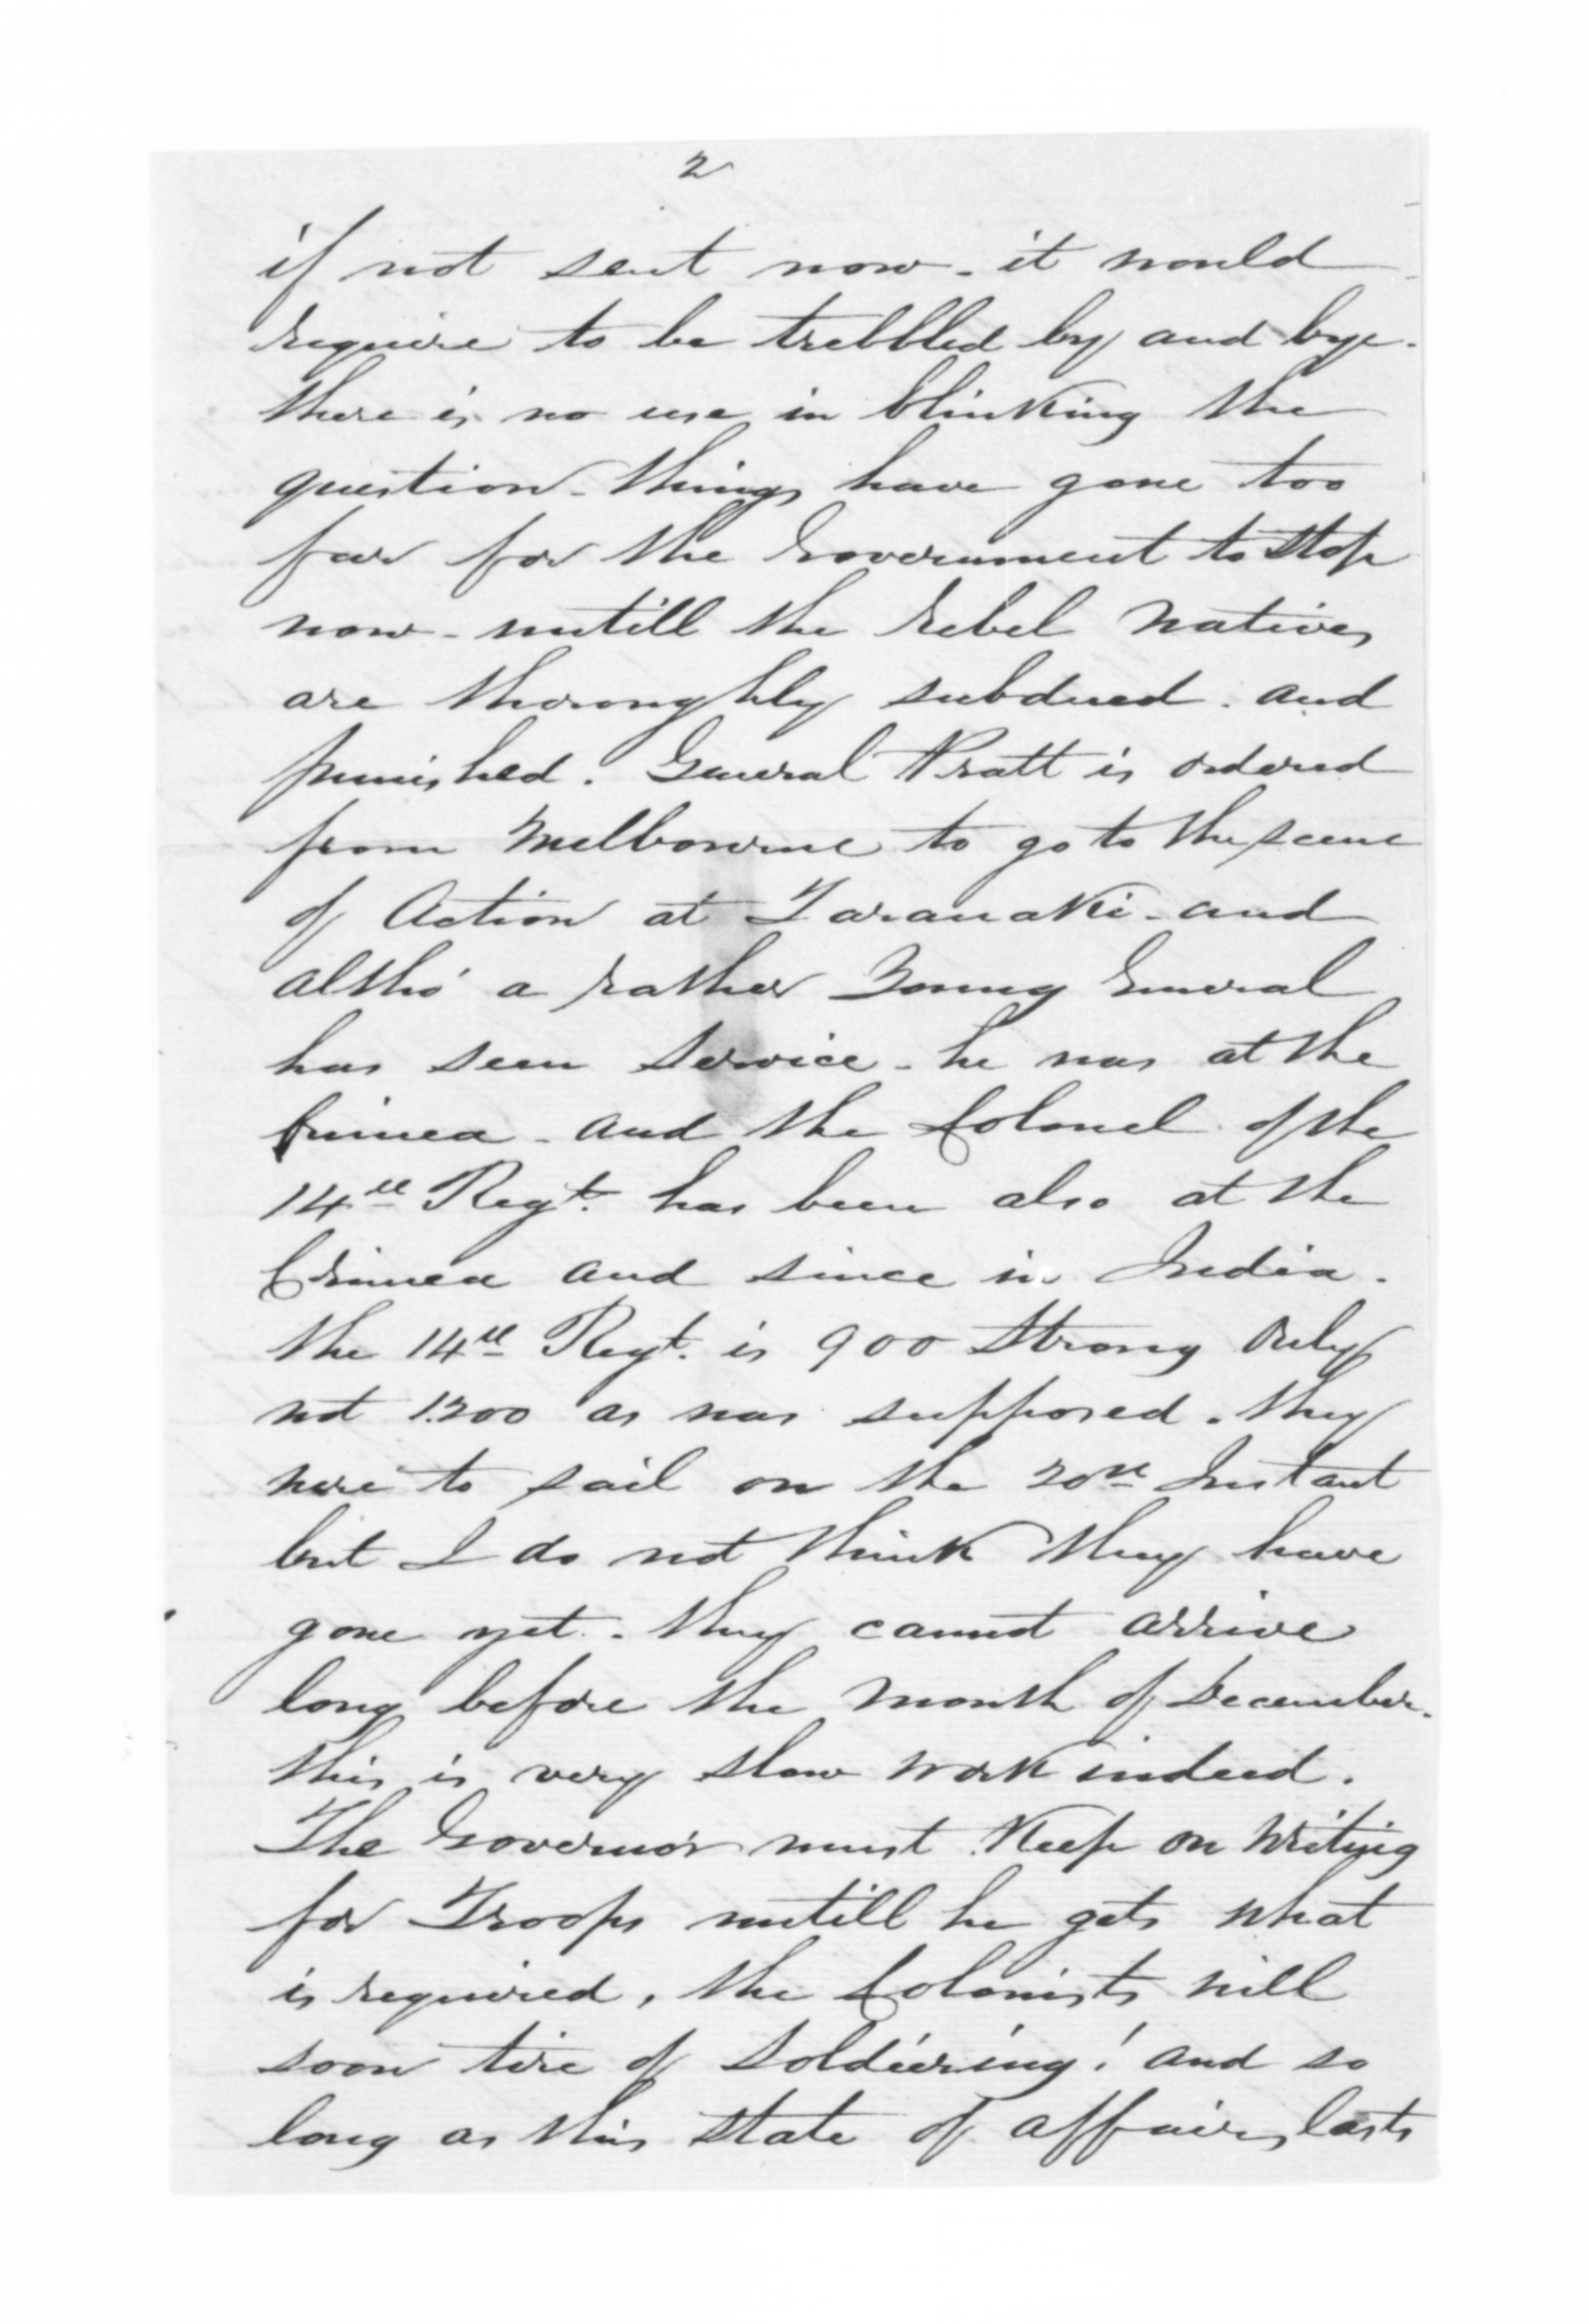 2
if not sent now - it would
require to be trebbled by and bye.
there is no use in blinking the
question - things have gone too
far for the Government to stop
now - untill the rebel Natives
are thoroughly subdued. and
punished. General Pratt is ordered
from Melbourne to go to the scene
of Action at Taranaki - and
altho' a rather Young General
has seen service - he was at the
Crimea - and the Colonel of the
14th Regt. has been also at the
Crimea and since in India.
the 14th Regt. is 900 strong Only
not 1200 as was supposed. they
were to sail on the 20th Instant
but I do not think they have
gone yet. they cannot arrive
long before the month of December.
this is very slow work indeed.
The Governor must Keep on Writing
for Troops untill he gets what
is required, the Colonists will
soon tire of soldiering! and so
long as this state of affairs lasts